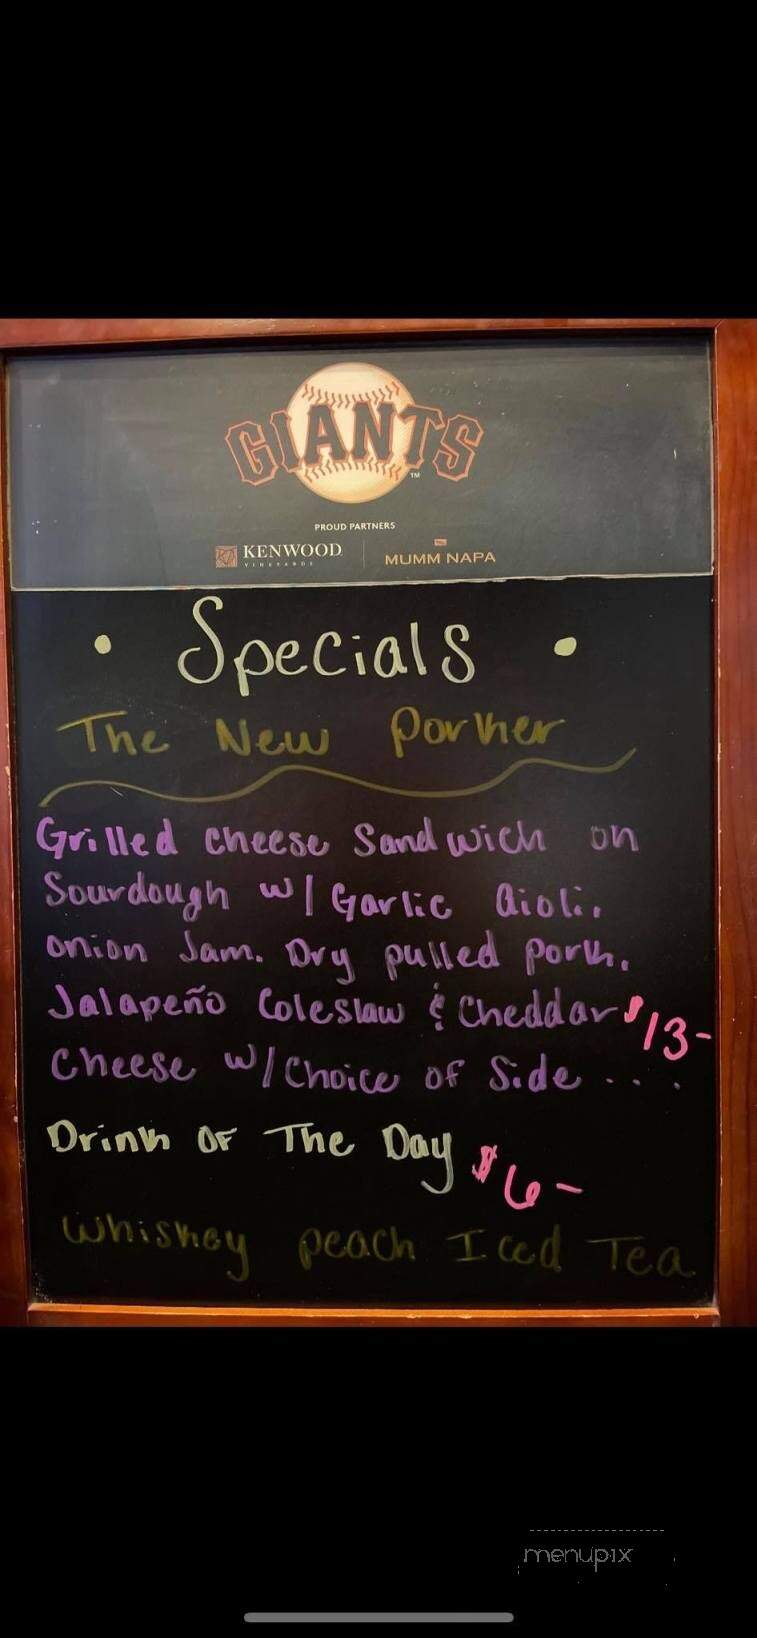 GIANTS
TM
PROUD PARTNERS
KENWOOD
VINEYARDS
MUMM NAPA
• Specials •
The New Porker
Grilled cheese Sandwich on
Sourdough w/ Garlic aioli.
onion Jam. Dry pulled pork.
Jalapeño Coleslaw & Cheddar $13-
Cheese w/ Choice of Side ....
Drink OF The Day $6-
Whiskey peach Iced Tea
menupix